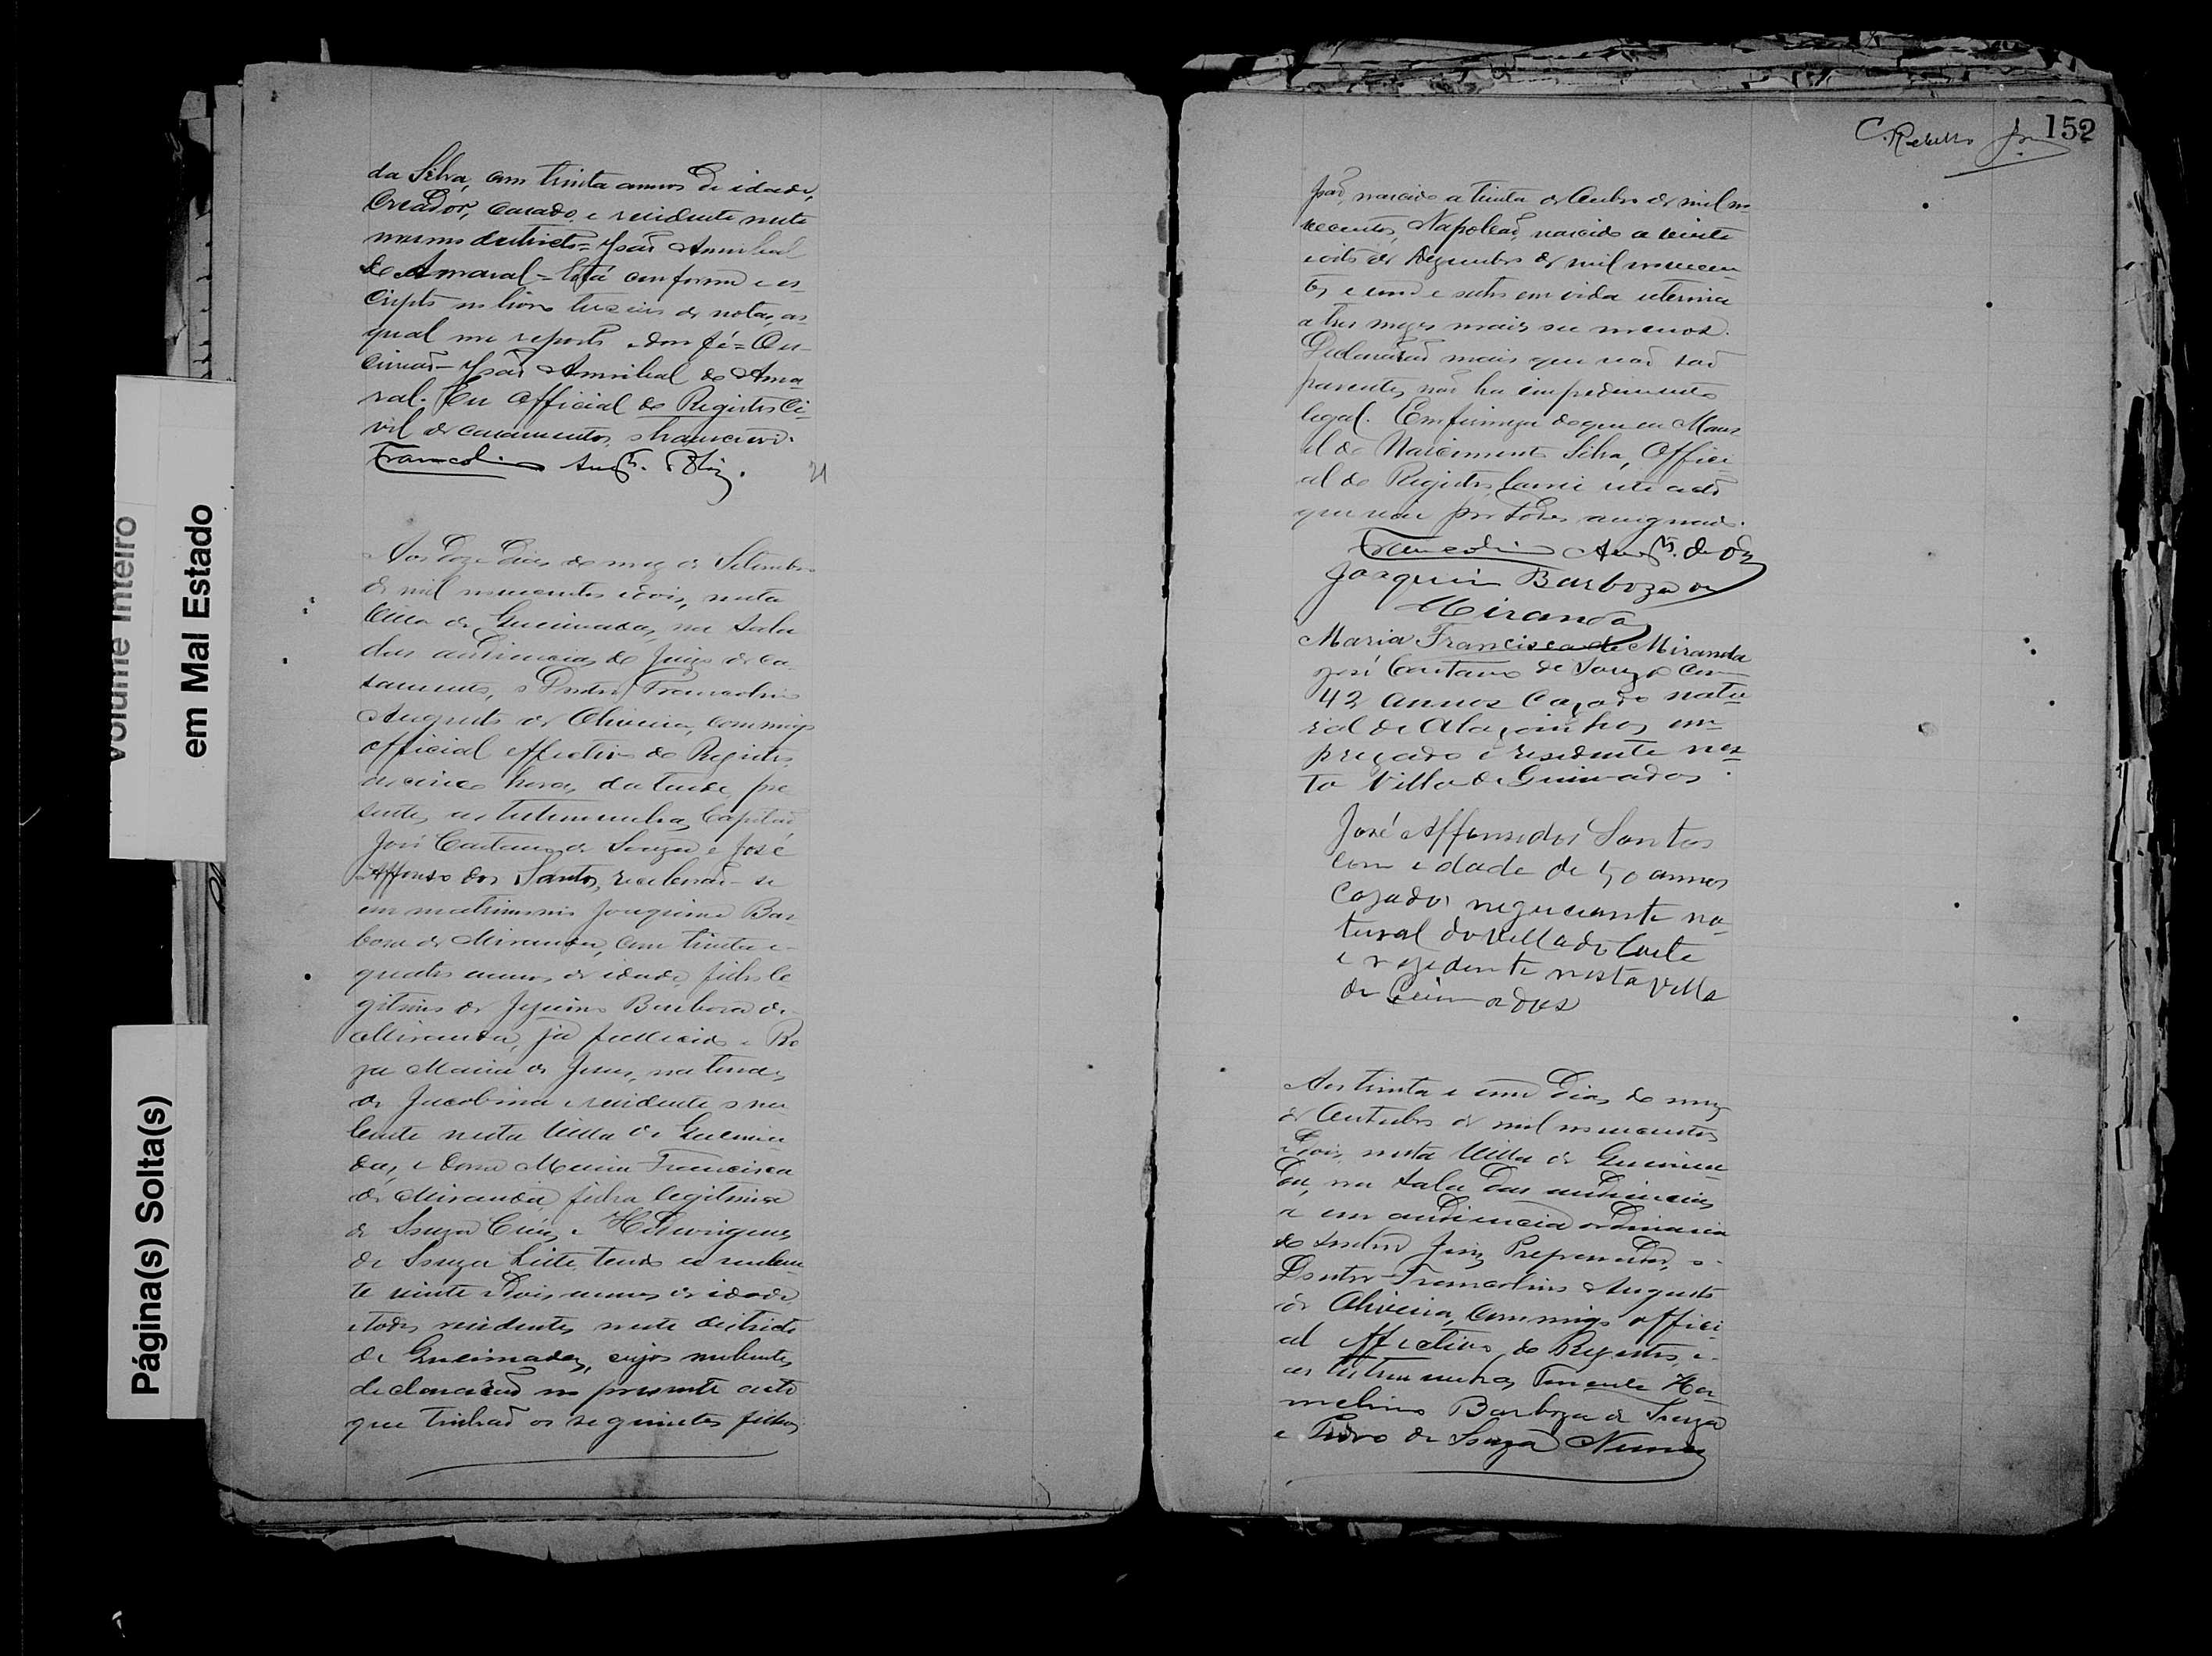 da Silva, com trinta annos de idade,
Creador, casado e residente neste
mesmo districto = João Annibal
do Amaral = Está conforme e es
cripto no livro de notas, ao
qual me reporto e dou fé = Quei
João Annibal do Ama
ral. Eu Official do Registro Ci
vil de casamentos, o transcrevi.
Francolino Augto.
21
Aos doze dias do mez de Setembro
de mil novecentos e dois, nesta
Villa de Queimadas, na sala
das audiencias do Juizo de ca
samentos, o Doutor Francolino
Augusto de Oliveira, commigo
official effectivo do Registro,
as cinco horas da tarde, pre
sentes as testemunhas, Capitão
José Caetano de Souza e José
Affonso dos Santos, receberão-se
em matrimonio Joaquim Bar
bosa de Miranda, com trinta e
quatro annos de idade, filho le
gitimo de Barbosa de
Miranda, já fallecido e Ro
za Maria de Jesus, natural
de Jacobina e residente
nesta Villa de Queima
das, e Dona Maria Francisca
de Miranda, filha legitima
de Souza e
de Souza Leite, tendo
te vinte e dois annos de idade
e todos residentes neste districto
de Queimadas, cujos nubentes
declararão no presente acto
que tinhão os seguintes filhos
C. Rebello
152
João, nascido a trinta de Outubro de mil no
vecentos, Napoleão, nascido a vinte
e oito de Dezembro de mil novecen
tos e um e outro em vida uterina
a tres mezes mais ou menos.
Declararão mais que não são
parentes, não ha impedimento
legal. Em firmeza do que eu Mano
el do Nascimento Silva, Offici
al do Registro, lavrei este acto
que vae por todos assignado.
Francolino Augto. de
Joaquim Barboza de
Miranda
Maria Francisca de Miranda
José Caetano de Souza com
42 annos cazado natu
ral de Alagoinhas, em
pregado e residente nes
ta Villa de Queimadas.
José Affonso dos Santos
com idade de 50 annos
cazado, negociante na
tural da Villa do
e rezedente nesta Villa
de Queimadas
Aos trinta e um dias do mez
de Outubro de mil novecentos
e dois, nesta Villa de Queima
das, na sala das audiencias
e em audiencia ordinaria
do Doutor Juiz Preparador, o
Doutor Francolino Augusto
de Oliveira, commigo offici
al effectivo do Registro, e
as testemunhas, Tenente Her
melino Barboza de Souza
e Pedro de Souza Nunes
Volume Inteiro
em Mal Estado
Página(s) Solta(s)